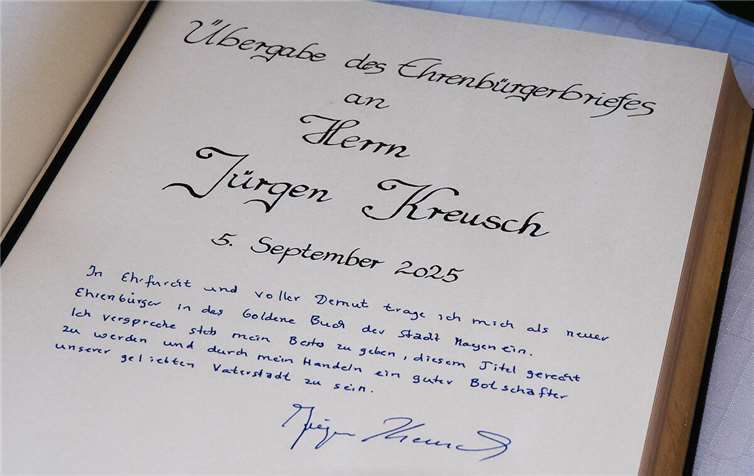 Übergabe des Ehrenbürgerbriefes
an
Herrn
Jürgen Kreusch
5. September 2025
In Ehrfurcht und voller Demut trage ich mich als neuer
Ehrenbürger in das Goldene Buch der Stadt Mayen ein.
Ich verspreche stets mein Bestes zu geben, diesem Titel gerecht
zu werden und durch mein Handeln ein guter Botschafter
unserer geliebten Vaterstadt zu sein.
Jürgen Kreusch